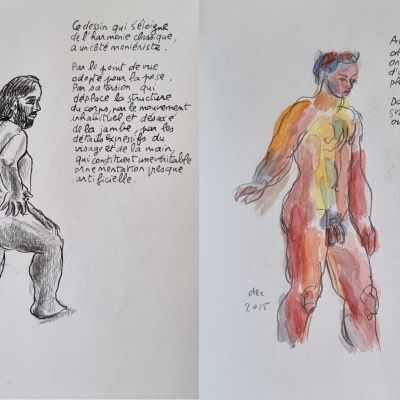 Ce dessin qui s'éloigne
de l'harmonie classique,
a un côté maniériste.
Par le point de vue
adopté pour la pose.
Par sa torsion qui
déplace la structure
du corps, par le mouvement
inhabituel et désaxé
de la jambe, par les
détails expressifs du
visage et de la main,
qui constituent une véritable
ornementation presque
artificielle.
dec
2015